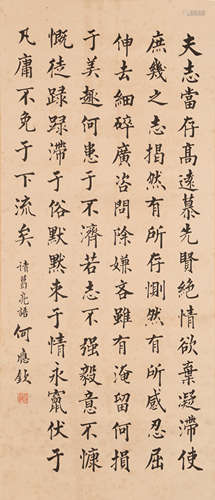 夫志當存高遠慕先賢絕情欲棄凝滯使
庶幾之志揭然有所存惻然有所感忍屈
伸去細碎廣咨問除嫌吝雖有淹留何損
于美趣何患于不濟若志不强毅意不慷
慨徒碌碌滯于俗默默束于情永竄伏于
凡庸不免于下流矣
諸葛亮語 何應欽